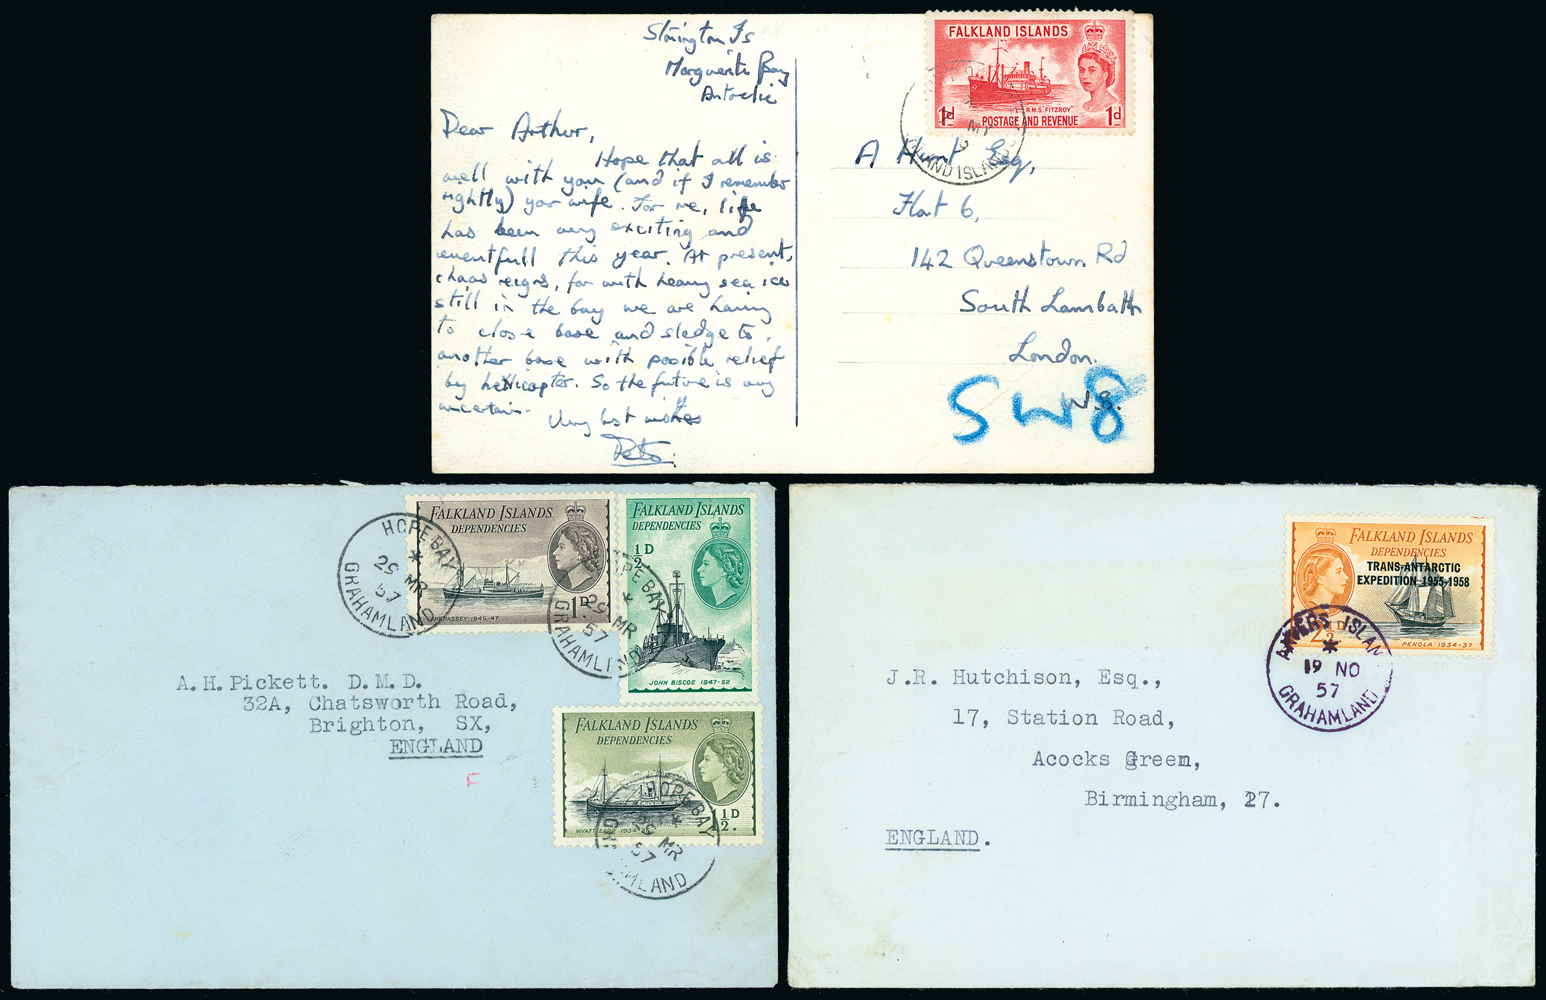 Stonington Is
Marguerite Bay
Antarctic
Dear Arthur,
Hope that all is
well with you (and if I remember
rightly) your wife. For me, life
has been very exciting and
eventfull this year. At present,
chaos reigns, for with heavy sea ice
still in the bay we are having
to close base and sledge to
another base with possible relief
by helicopter. So the future is very
uncertain. Very best wishes
FALKLAND ISLANDS
R.M.S. "FITZROY"
1d POSTAGE AND REVENUE 1d
MY
ISLANDS
A Hunt Esq,
Flat 6,
142 Queenstown Rd
South Lambeth
London.
W.8.
SW8
HOPE BAY
25 MR
57
GRAHAMLAND
FALKLAND ISLANDS
DEPENDENCIES
1D.
TREPASSEY 1945-47
FALKLAND ISLANDS
DEPENDENCIES
½D
JOHN BISCOE 1947-52
HOPE BAY
25 MR
57
GRAHAMLAND
FALKLAND ISLANDS
DEPENDENCIES
1½D.
WYATT EARP 1934
HOPE BAY
25 MR
57
GRAHAMLAND
A.H.Pickett. D.M.D.
32A, Chatsworth Road,
Brighton, SX,
ENGLAND
FALKLAND ISLANDS
DEPENDENCIES
TRANS-ANTARCTIC
EXPEDITION 1955-1958
2½D
PENOLA 1934-37
ANVERS ISLAN
19 NO
57
GRAHAMLAND
J.R. Hutchison, Esq.,
17, Station Road,
Acocks Green,
Birmingham, 27.
ENGLAND.